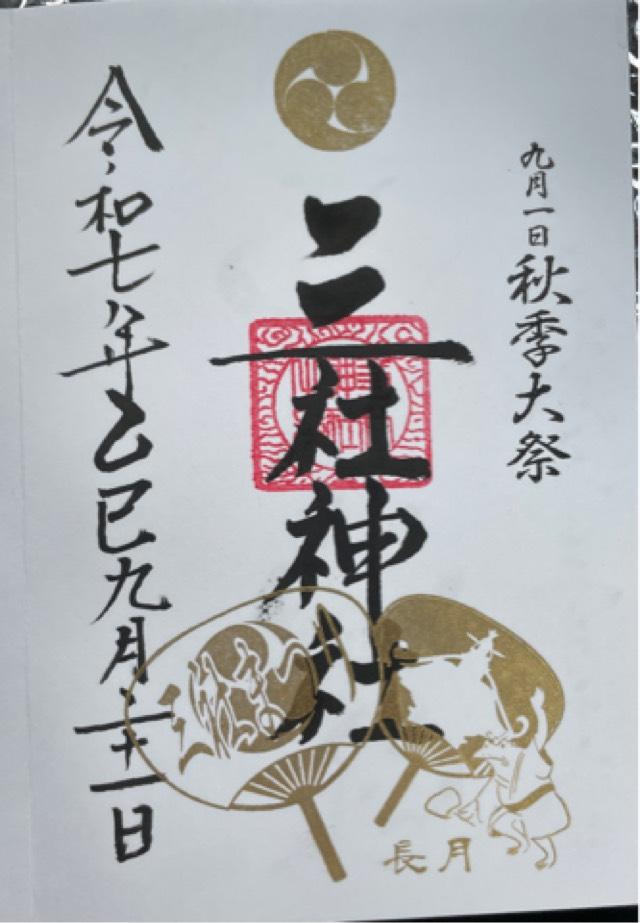 九月一日秋季大祭
三社神社
令和七年乙巳九月二十一日
長月